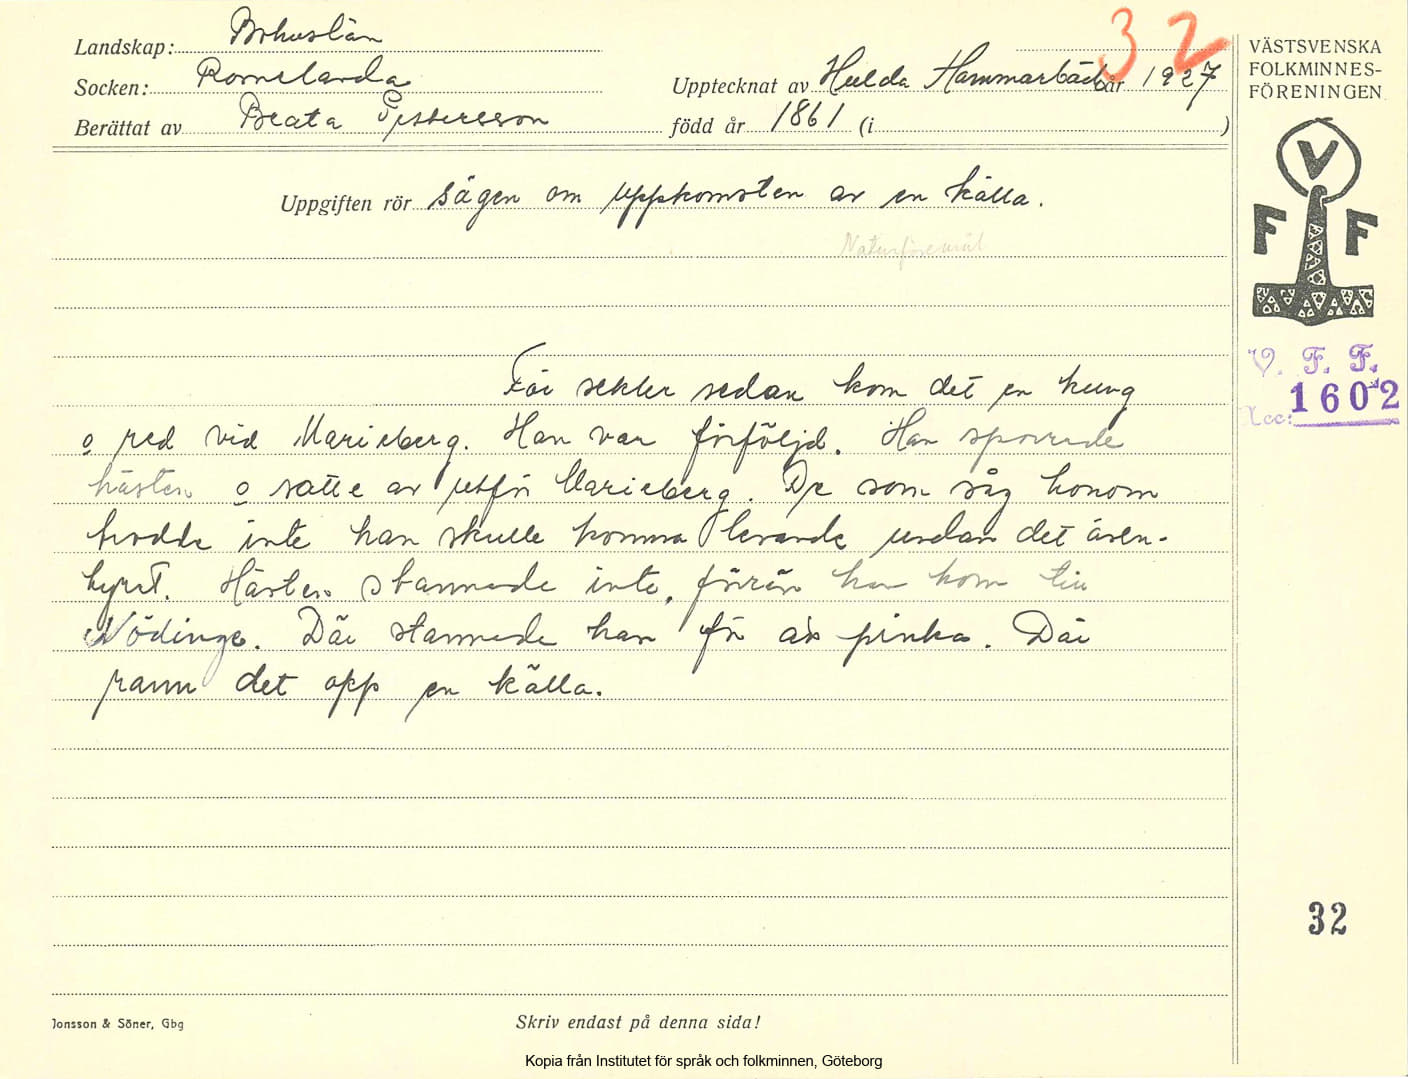 32
Landskap: Bohuslän
Socken: Romelanda
Upptecknat av Hulda Hammarbäck år 1927
Berättat av Beata Pettersson född år 1861 (i )
Uppgiften rör sägen om uppkomsten av en källa.
Naturföremål
För sekler sedan kom det en kung
o red vid Marieberg. Han var förföljd. Han sporrade
hästen o satte av utför Marieberg. De som såg honom
trodde inte han skulle komma levande undan det även-
tyret. Hästen stannade inte, förrän han kom till
Nödinge. Där stannade han för att pinka. Där
rann det opp en källa.
Jonsson & Söner, Gbg
Skriv endast på denna sida!
VÄSTSVENSKA
FOLKMINNES-
FÖRENINGEN
V
F F
V. F. F.
Acc: 1602
32
Kopia från Institutet för språk och folkminnen, Göteborg